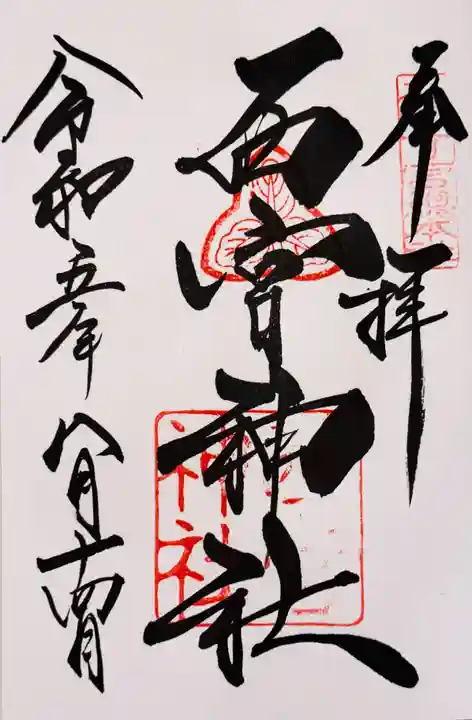 奉拝
西宮神社
令和五年八月十四日
神社